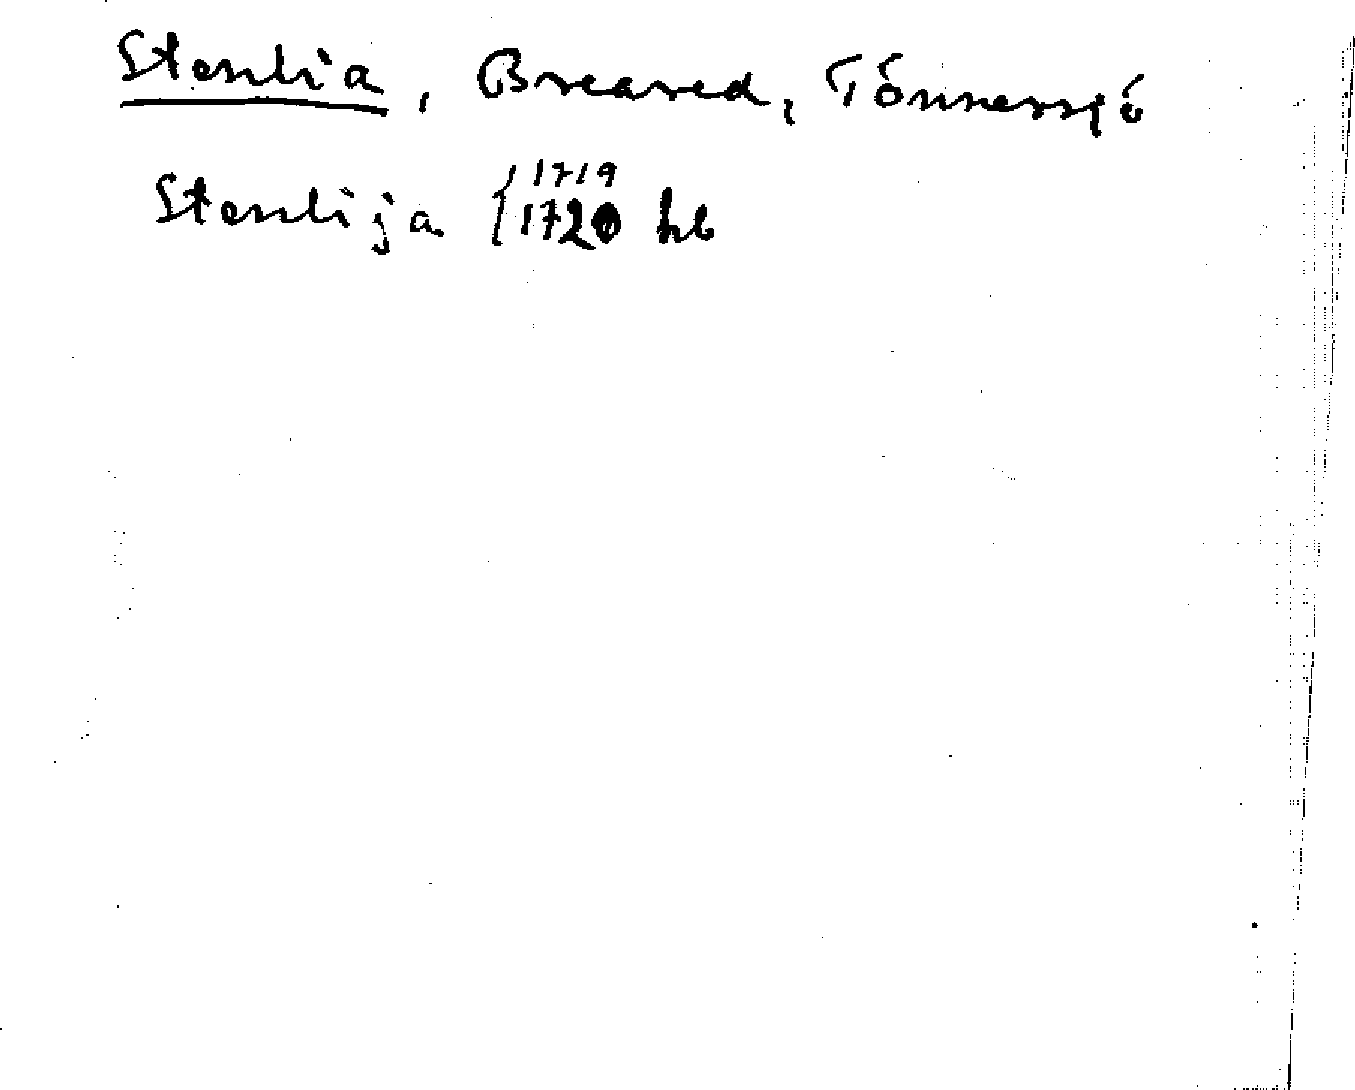 Stenlia, Breared, Tönnersjö
Stenlija { 1719
1720 hb